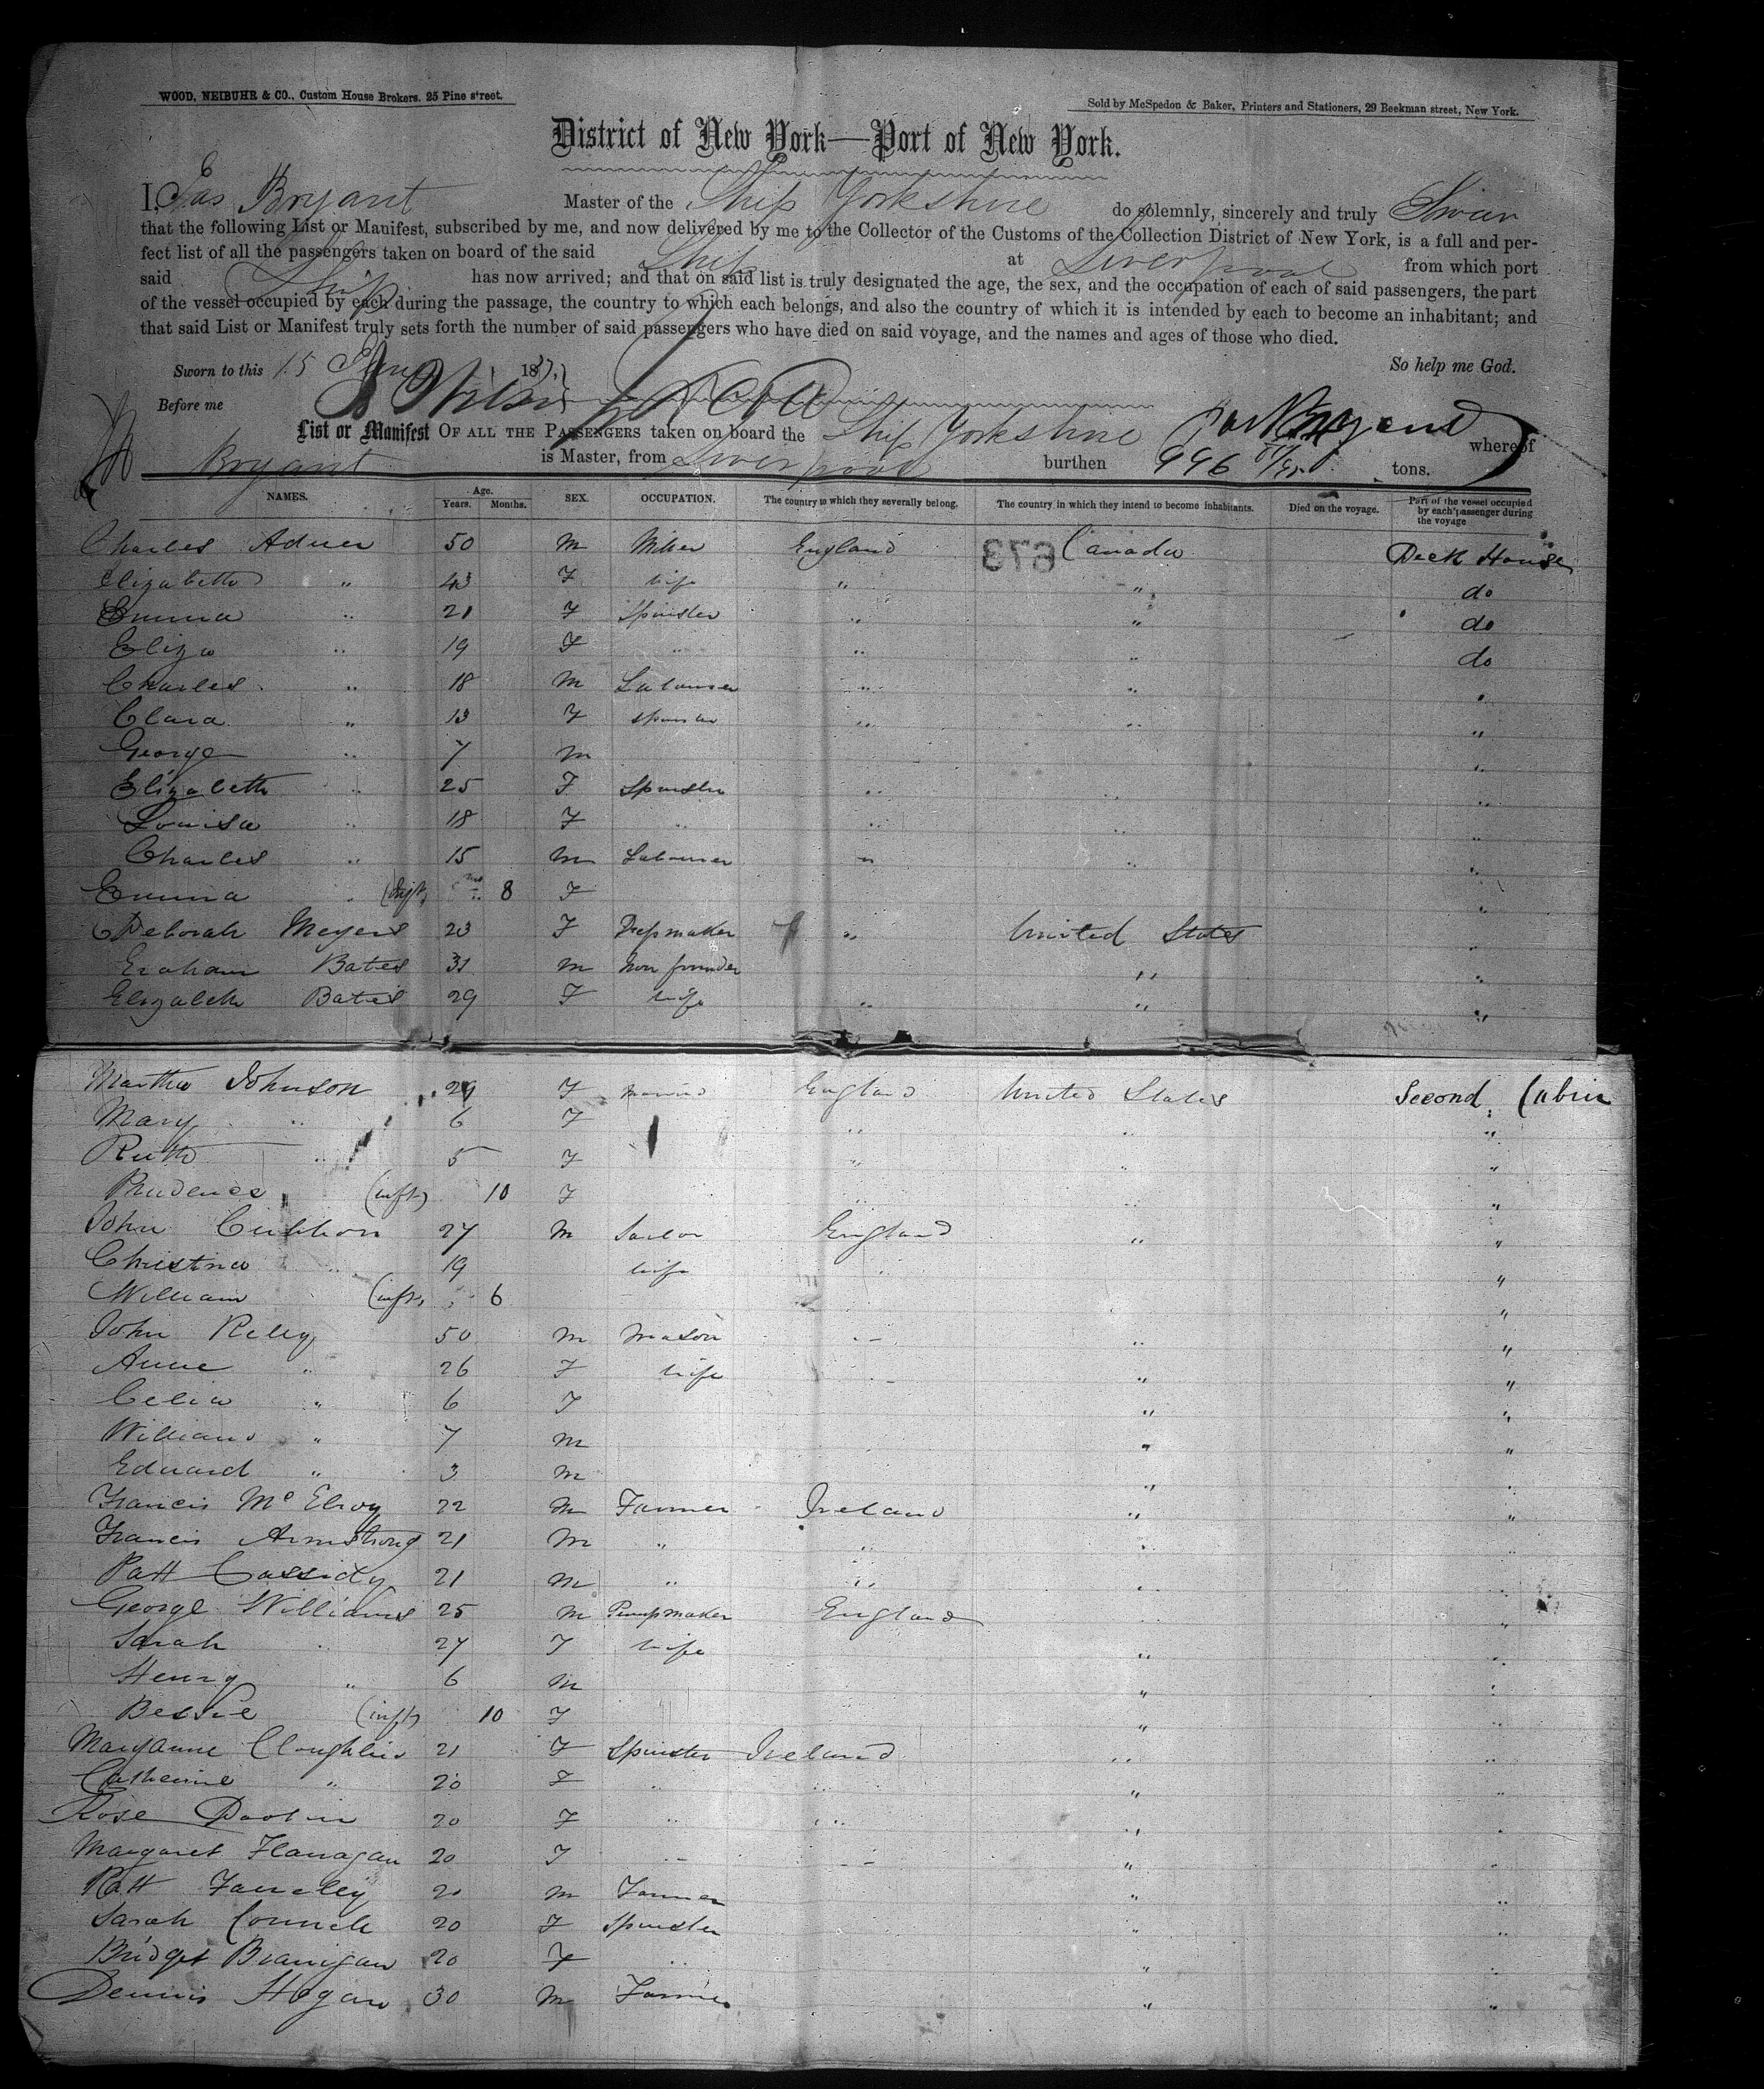 WOOD, NEIBUHR & CO., Custom House Brokers. 25 Pine street.
Sold by McSpedon & Baker, Printers and Stationers, 29 Beekman street, New York.
District of New York—Port of New York.
I, Jas Bryant Master of the Ship Yorkshire do solemnly, sincerely and truly Swear
that the following List or Manifest, subscribed by me, and now delivered by me to the Collector of the Customs of the Collection District of New York, is a full and per-
fect list of all the passengers taken on board of the said Ship at Liverpool from which port
said Ship has now arrived; and that on said list is truly designated the age, the sex, and the occupation of each of said passengers, the part
of the vessel occupied by each during the passage, the country to which each belongs, and also the country of which it is intended by each to become an inhabitant; and
that said List or Manifest truly sets forth the number of said passengers who have died on said voyage, and the names and ages of those who died.
Sworn to this 15 185 So help me God.
Before me
List or Manifest OF ALL THE PASSENGERS taken on board the Ship Yorkshire whereof
Bryant is Master, from Liverpool burthen 996 tons.
NAMES. Age. Years. Months. SEX. OCCUPATION. The country to which they severally belong. The country in which they intend to become inhabitants. Died on the voyage. Part of the vessel occupied by each passenger during the voyage
Charles 50 M England 673 Canada Deck House
Elizabeth " 43 F wife " " do
Emma " 21 F Spinster " " do
Eliza " 19 F " " " do
Charles " 18 M Labourer " " "
Clara " 13 F spinster " " "
George " 7 M "
Elizabeth " 25 F Spinster " " "
Louisa " 18 F " " " "
Charles " 15 M Labourer " " "
Emma (Inft) 8 F "
Deborah Meyers 23 F Dressmaker " United States "
Bates 31 M Iron founder " "
Elizabeth Bates 29 F wife " " "
Martha Johnson 29 F married England United States Second Cabin
Mary " 6 F " " "
Ruth " 5 F " " "
Prudence (inft) 10 F " " "
John 27 M England " "
Christina " 19 wife " "
William (inft) 6 "
John Reley 50 M Mason " " "
Anne " 26 F wife " " "
Celia " 6 F " "
William " 7 M " "
Edward " 3 M " "
Francis McElroy 22 M Farmer Ireland " "
Francis Armstrong 21 M " " " "
Patt Cassidy 21 M " " " "
George Williams 25 M Pumpmaker England " "
Sarah " 27 F wife " "
Henry " 6 M " "
Bessie (inft) 10 F " "
Maryanne Cloughlin 21 F Spinster Ireland " "
Catherine " 20 F " " " "
Rose 20 F " " " "
Margaret Flanagan 20 F " " " "
Patt 20 M Farmer " "
Sarah 20 F Spinster " "
Bridget Branigan 20 F " " "
Dennis Hogan 30 M Farmer " "